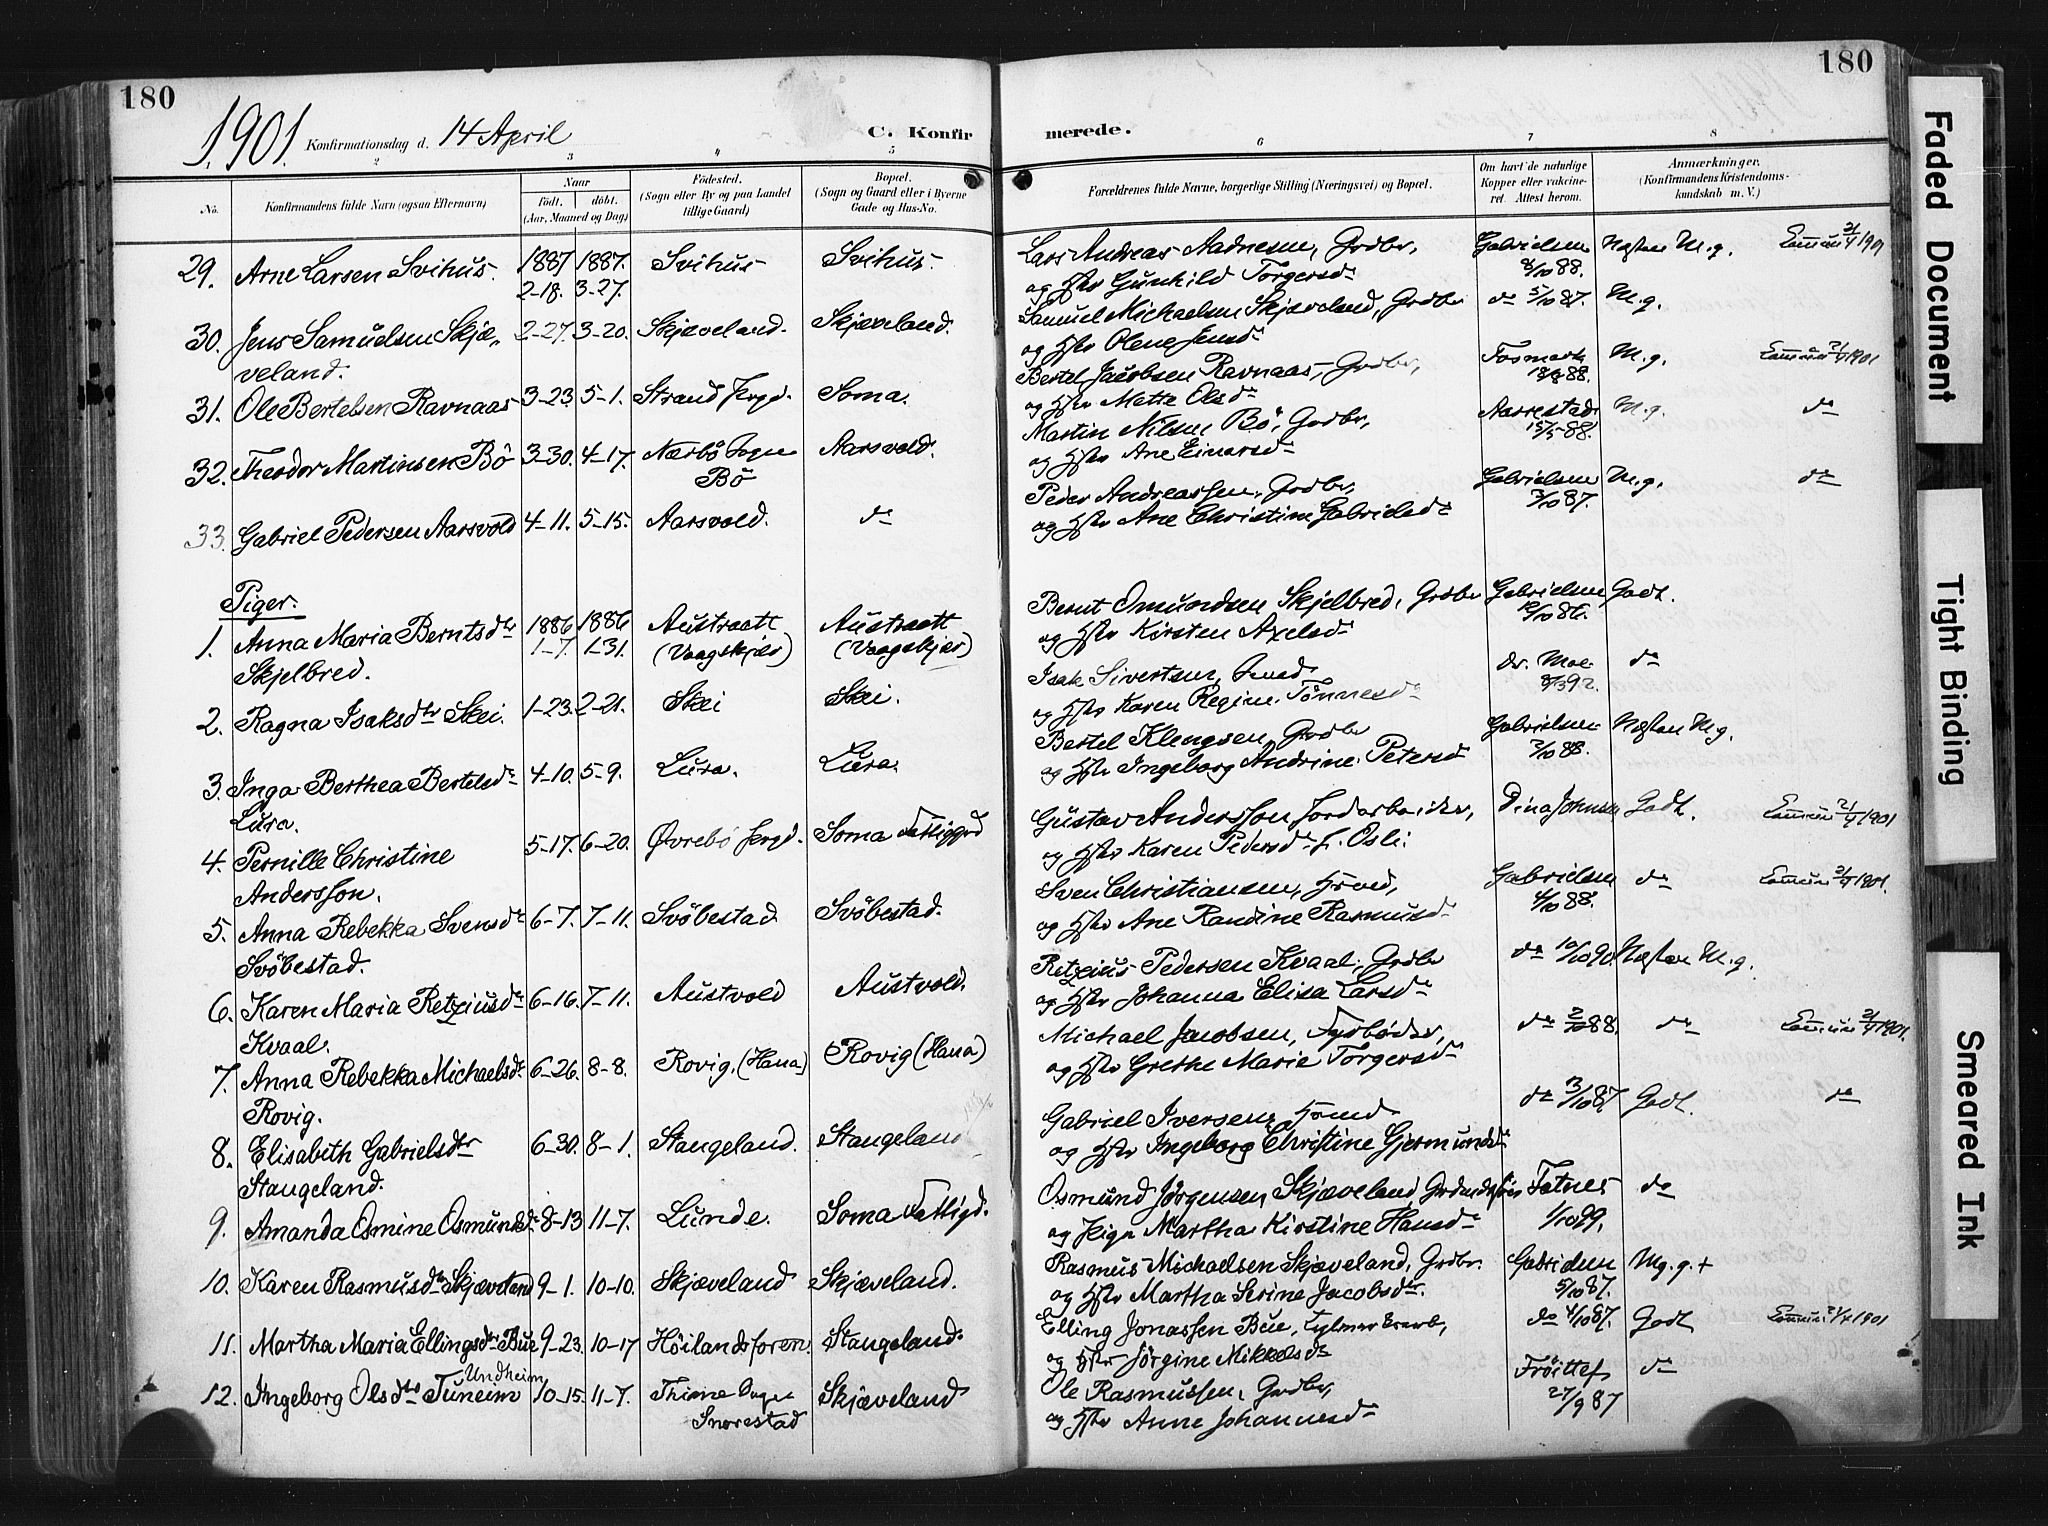 180
180
1901. Konfirmationsdag d. 14 April
C. Konfir merede.
1 2 3 4 5 6 7 8
No.
Konfirmandens fulde Navn (ogsaa Efternavn)
Naar
Födt. döbt.
(Aar, Maaned og Dag)
Födested.
(Sogn eller By og paa Landet
tillige Gaard)
Bopæl.
(Sogn og Gaard eller i Byerne
Gade og Hus-No.
Forældrenes fulde Navne, borgerlige Stilling (Næringsvei) og Bopæl.
Om havt de naturlige
Kopper eller vakcine-
ret. Attest herom.
Anmærkninger.
(Konfirmandens Kristendoms-
kundskab m. V.)
29. Arne Larsen Svihus. 1887 2-18. 1887. 3-27. Svihus Svihus.
Lars Andreas Aadnesen, Grdbr, Gabrielsen 8/10 88. Næsten M.g. 21/4 1901
og Hstr Gunhild Torgersdr
30. Jens Samuelsen Skjæ- 2-27. 3-20. Skjæveland. Skjæveland.
veland.
Samuel Michaelsen Skjæveland, Grdbr do 5/10 87. M.g.
og Hstr Olene Jensdr
31. Ole Bertelsen Ravnaas 3-23. 5-1. Strand Prgd. Soma.
Bertel Jacobsen Ravnaas, Grdbr, Fosmark 18/8 88. M.g. 21/4 1901
og Hstr Mette Olsdr
32. Theodor Martinsen Bö 3-30. 4-17. Nærbö Sogn Aarsvold.
Bö
Martin Nilsen Bö, Grdbr, Aarrestad 15/5 88. M.g. do
og Hstr Ane Einarsdr
33. Gabriel Pedersen Aarsvold 4-11. 5-15. Aarsvold. do
Peder Andreassen, Grdbr, Gabrielsen 3/10 87. M.g. do
og Hstr Ane Christine Gabrielsdr
Piger.
1. Anna Maria Berntsdtr 1886 1-7. 1886 1-31. Austraatt Austraatt
Skjelbred. (Vaagskjær) (Vaagskjær)
Bernt Omundsen Skjelbred, Grdbr Gabrielsen 12/10 86. Godt.
og Hstr Kirsten Axelsdr
2. Ragna Isaksdtr Skei. 1-23. 2-21. Skei Skei.
Isak Sivertsen, dr. Moe 8/3 92. do
og Hstr Karen Regine Tönnesdr
3. Inga Berthea Bertelsdr 4-10. 5-9. Lura. Lura.
Lura.
Bertel Klengsen, Grdbr Gabrielsen 2/10 88. Næsten M.g.
og Hstr Ingeborg Andrine Petersd
4. Pernille Christine 5-17. 6-20. Øvrebö Prgd. Soma Fattiggrd
Anderssen.
Gustav Anderssen Jordarbeider, Dina Johnsen Godt. 21/4 1901
og Hstr Karen Pedersdr f. Osli.
5. Anna Rebekka Svensdr 6-7. 7-11. Svöbestad Svöbestad.
Svöbestad.
Sven Christiansen, Gabrielsen 4/10 88. do 21/4 1901.
og Hstr Ane Randine Rasmusdr
6. Karen Maria Retziusdr 6-16. 7-11. Austvold Austvold.
Kvaal.
Retzius Pedersen Kvaal, Grdbr do 10/10 90. Næsten M.g.
og Hstr Johanna Elisa Larsdr
7. Anna Rebekka Michaelsdr 6-26. 8-8. Rovig. (Hana) Rovig (Hana)
Rovig.
Michael Jacobsen, Fyrböder, do 2/10 88. do 21/4 1901.
og Hstr Grethe Marie Torgersdr
8. Elisabeth Gabrielsdtr 6-30. 8-1. Stangeland. Stangeland
Stangeland.
Gabriel Iversen, do 3/10 87. Godt. do
og Hstr Ingeborg Christine Gjermundsdr
9. Amanda Osmine Osmundsdr 8-13 11-7. Lunde. Soma Fattigd.
Osmund Jörgensen Skjæveland, Fotnes 1/10 99. do
og Pige Martha Kirstine Hansdr
10. Karen Rasmusdr Skjæveland 9-1. 10-10. Skjæveland Skjæveland.
Rasmus Michaelsen Skjæveland, Grdbr. Gabrielsen 5/10 87. Mg.g. +
og Hstr Martha Serine Jacobsdtr.
11. Martha Maria Ellingsdtr Bue 9-23. 10-17 Höilandsforen. Stangeland.
Elling Jonassen Bue, do 4/10 87. Godt 21/4 1901
og Hstr Jörgine Mikkelsdr
12. Ingeborg Olsdtr Tuneim Undheim 10-15. 11-7. Thime Sogn Skjæveland
Snorestad
Ole Rasmussen, Grdbr, 27/9 87 do
og Hstr Anne Johannesdr
Faded Document
Tight Binding
Smeared Ink